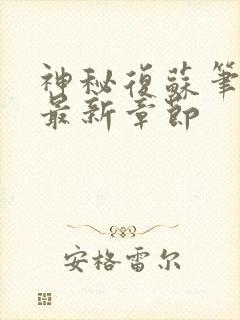 神秘復蘇筆
最新章節
安格雷尔